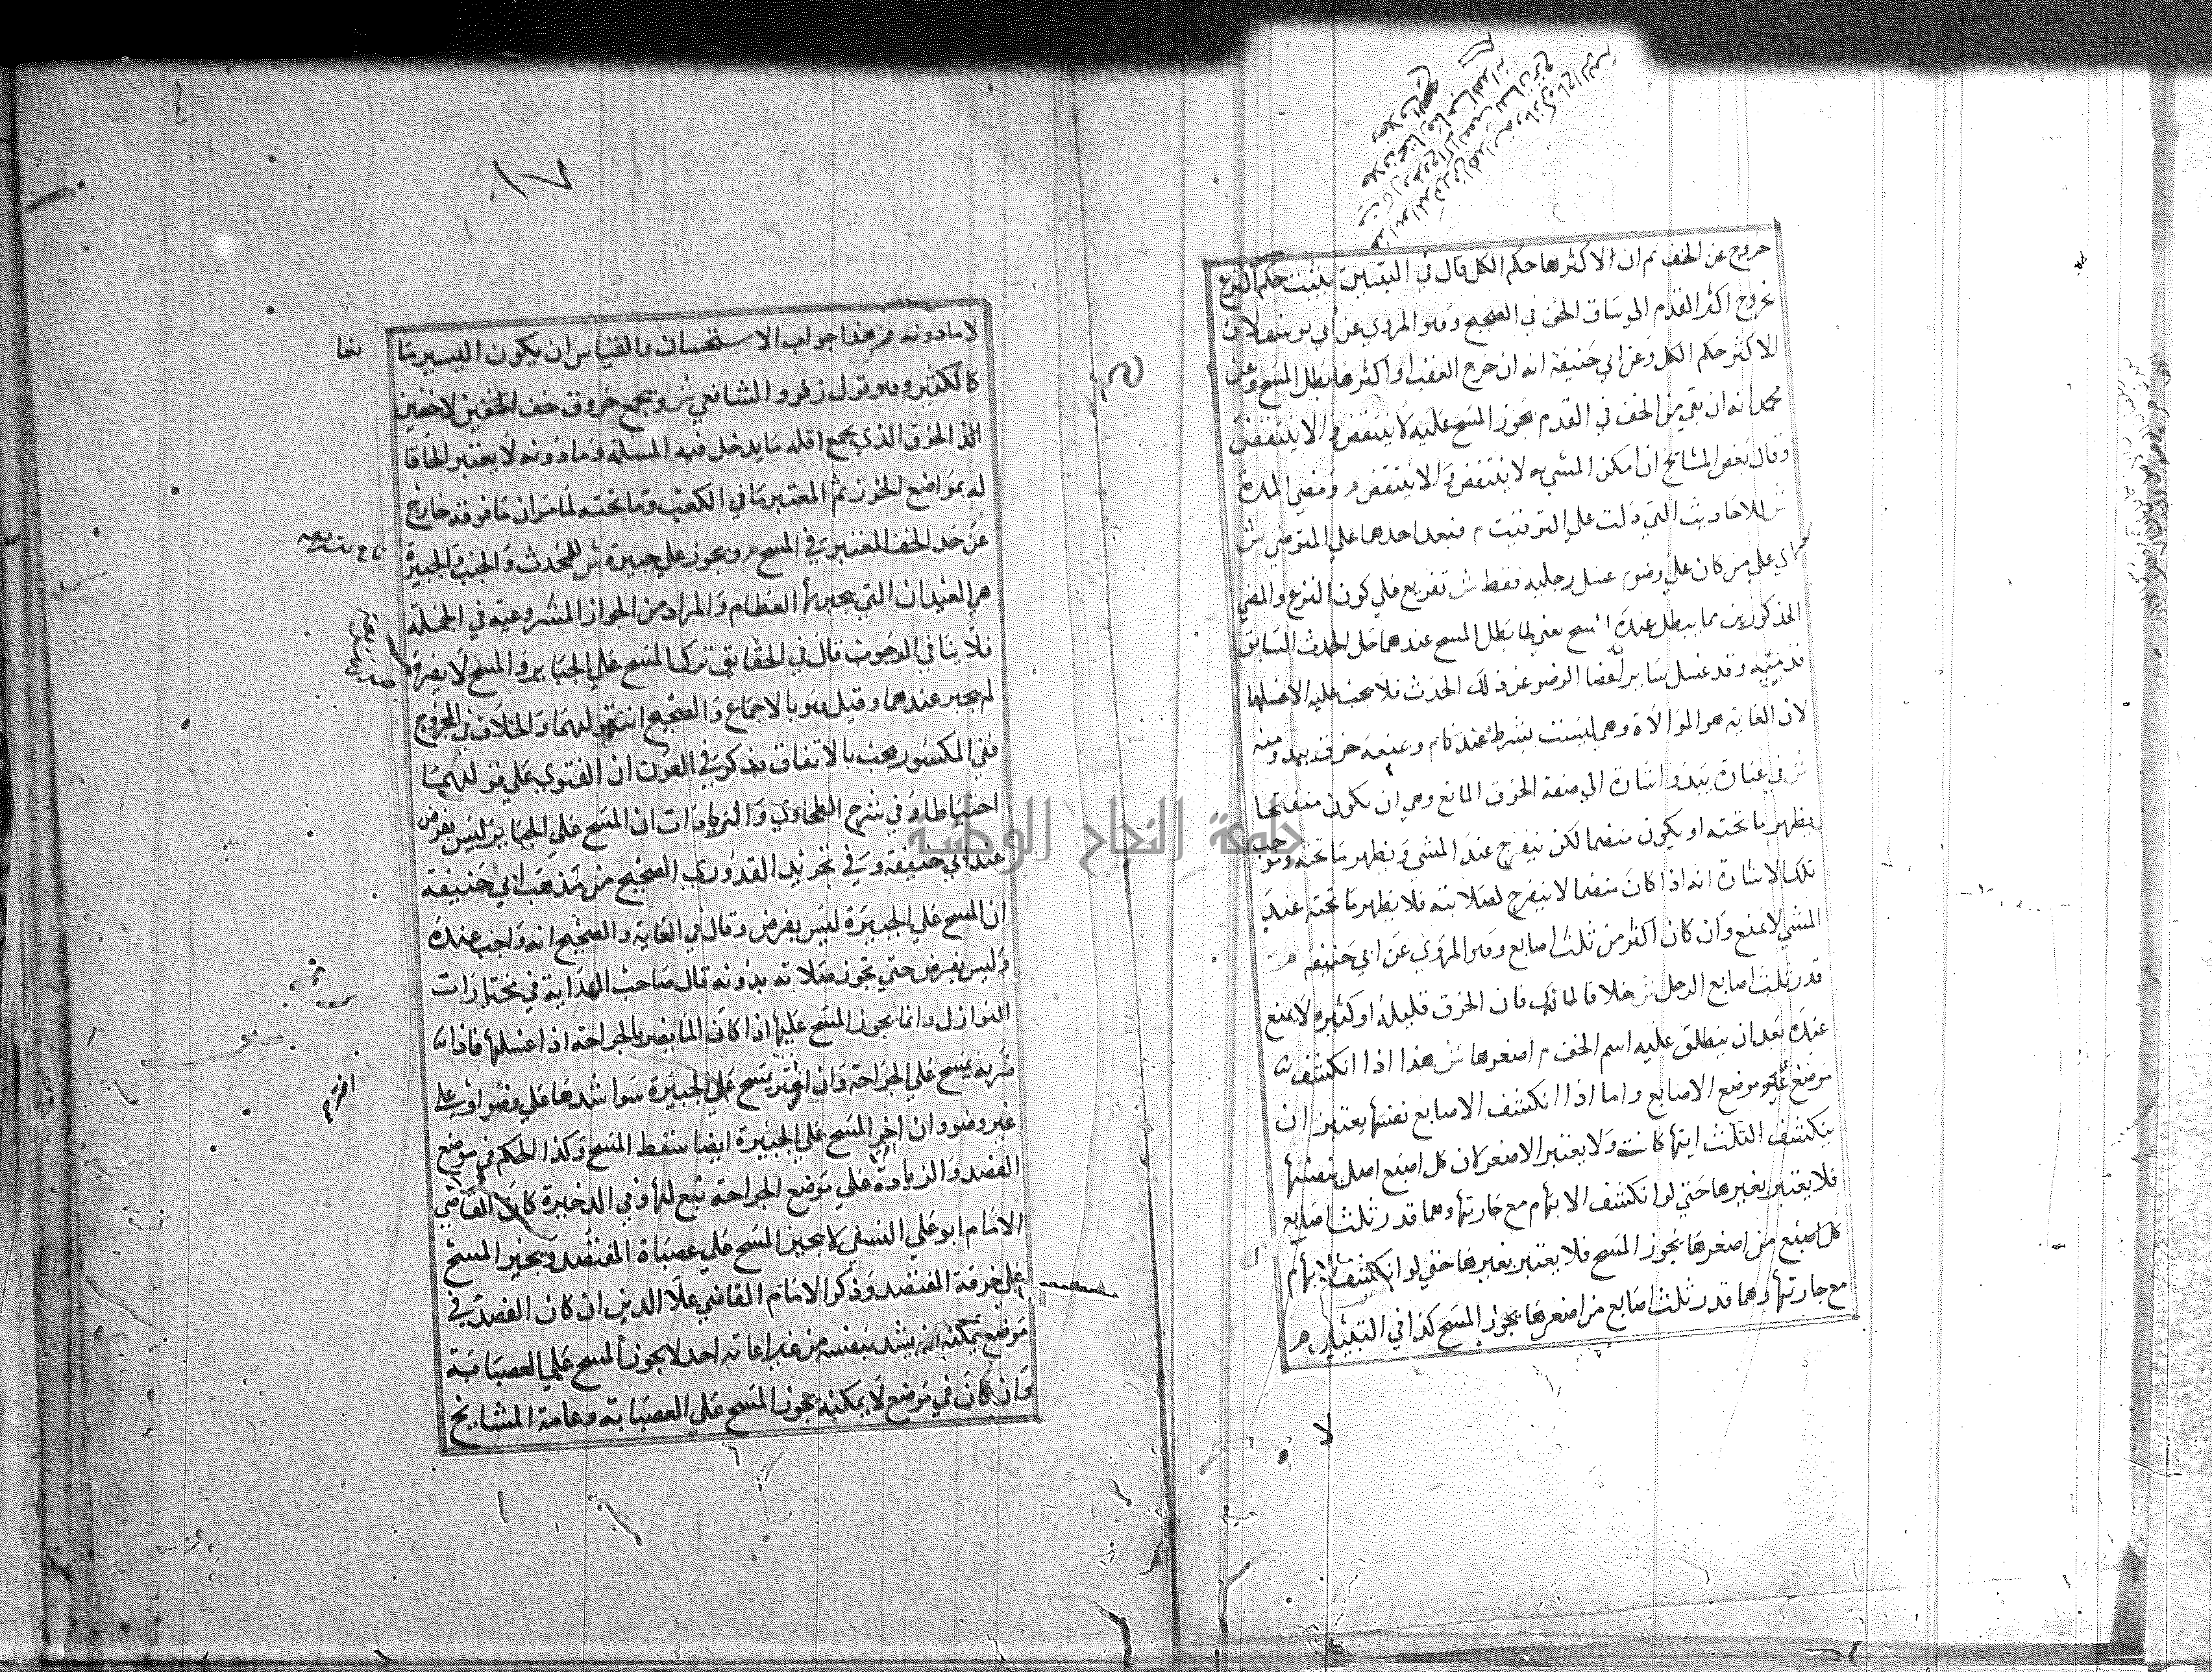 خروج عن الخف ثم ان الاكثر لها حكم الكل قال في التبيين يثبت حكم النزع
بخروج اكثر القدم الى ساق الخف في الصحيح وهو المروي عن ابي يوسف لان
للاكثر حكم الكل وعن ابي حنيفة انه ان خرج العقب او اكثرها بطل المسح وعن
محمد انه ان بقي من الخف في القدم يجوز المسح عليه لا ينتقض والا ينتقض
وقال بعض المشايخ ان امكن المشي به لا ينتقض والا ينتقض م ومضي المدة
ش للاحاديث التي دلت على التوقيت م فبعد احدهما على المتوضي ش
اي على من كان على وضوء غسل رجليه فقط ش تفريع على كون النزع والمضي
المذكورين مما يبطل عنده المسح يعني لما بطل المسح عندهما حل الحدث السابق
قدميه وقد غسل ساير اعضا الوضو عن ذلك الحدث فلا يجب عليه الا غسلها
لان الغاية هو الموالاة وهي ليست بشرط عندنا م ويمنعه خرق يبدو منه
ش في عبارة يبدو اشارة الى صفة الخرق المانع وهي ان يكون منفتحا
يظهر ما تحته او يكون منضما لكن ينفرج عند المشي ويظهر ما تحته وموجب
تلك الاشارة انه اذا كان منضما لا ينفرج لصلابته فلا يظهر ما تحته عند
المشي لا يمنع وان كان اكثر من ثلث اصابع وهو المروي عن ابي حنيفة م
قدر ثلث اصابع الرجل ش خلافا لمالك فان الخرق قليله او كثيره لا يمنع
عنده بعد ان ينطلق عليه اسم الخف م اصغرها ش هذا اذا انكشف
موضع غير موضع الاصابع واما اذا انكشف الاصابع نفسها يعتبر ان
ينكشف الثلث ايتها كانت ولا يعتبر الاصغر لان كل اصبع اصل بنفسها
فلا يعتبر بغيرها حتى لو انكشف الابهام مع جارتها وهما قدر ثلث اصابع
كل اصبع من اصغرها يجوز المسح فلا يعتبر بغيرها حتى لو انكشف الابهام
مع جارتها وهما قدر ثلث اصابع من اصغرها يجوز المسح كذا في التبيين م
١٧
لا ما دونه ش هذا جواب الاستحسان والقياس ان يكون اليسير ما
كالكثير وهو قول زفر والشافعي ش ويجمع خروق خف الخفين لا خفين
الخرق الذي يجمع اقله ما يدخل فيه المسلة وما دونه لا يعتبر الحاقا
له بمواضع الخرز ثم المعتبر ما في الكعب وما تحته لما مر ان ما فوقه خارج
عن حد الخف المعتبر في المسح م ويجوز على جبيرة ش للمحدث والجنب والجبيرة
هي العيدان التي يجبر بها العظام والمراد من الجواز المشروعية في الجملة
فلا ينافي الوجوب قال في الحقايق ترك المسح على الجباير والمسح لا يضره
لم يجبر عندهما وقيل هو بالاجماع والصحيح انه قولهما والخلاف في المجروح
ففي المكسور يجب بالاتفاق وذكر في العون ان الفتوى على قولهما
احتياطا وفي شرح الطحاوي والزيادات ان المسح على الجباير ليس بفرض
عند ابي حنيفة وفي تجريد القدوري الصحيح من مذهب ابي حنيفة
ان المسح على الجبيرة ليس بفرض وقال في الغاية والصحيح انه واجب عنده
وليس بفرض حتى تجوز صلاته بدونه قال صاحب الهداية في مختارات
النوازل وانما يجوز المسح عليها اذا كان الما يضر بالجراحة اذا غسلها فاذا
ضربه يمسح على الجراحة وان يمسح على الجبيرة سوا شدها على وضو او على
غير وضو وان اضر المسح على الجبيرة ايضا سقط المسح وكذا الحكم في موضع
الفصد والزيادة على موضع الجراحة تبع لها وفي الذخيرة كان القاضي
الامام ابو علي النسفي لا يجيز المسح على عصابة المفتصد ويجيز المسح
على خرقة المفتصد وذكر الامام القاضي علا الدين ان كان الفصد في
موضع يمكنه ان يشد بنفسه من غير اعانة احد لا يجوز المسح على العصابة
وان كان في موضع لا يمكنه يجوز المسح على العصابة وعامة المشايخ
جامعة النجاح الوطنية